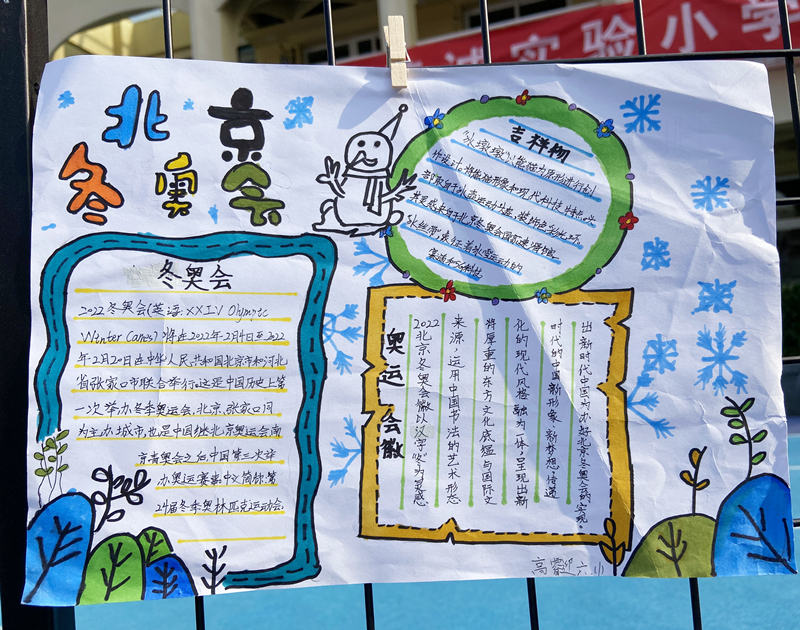 诚实验小学
北京
冬奥会
吉祥物
"冰墩墩"以熊猫为原形进行创
作设计,将熊猫形象和现代科技特点
取自于冰雪运动头盔,装饰彩色光环
其灵感来自于北京冬奥会国家速滑馆
"冰丝带"象征着冰雪运动的
赛道和5G科技
冬奥会
2022冬奥会(英语:XXIV Olympic
Winter Canes) 将在2022年2月4日至2022
年2月20日在中华人民共和国北京市和河北
省张家口市联合举行。这是中国历史上第
一次举办冬季奥运会,北京、张家口同
为主办城市,也是中国继北京奥运会南
京青奥会之后中国第三次举
办奥运赛事。中文简称"第
24届冬季奥林匹克运动会.
奥运会徽
2022北京冬奥会徽以汉字"冬"为灵感
来源,运用中国书法的艺术形态
将厚重的东方文化底蕴与国际文
化的现代风格融为一体,呈现出新
时代的中国新形象、新梦想,传递
出新时代中国为办好北京冬奥会的实现.